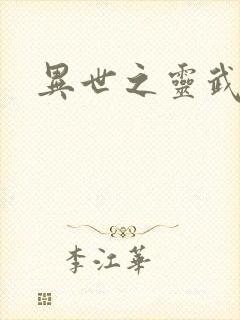 異世之靈武
李江華